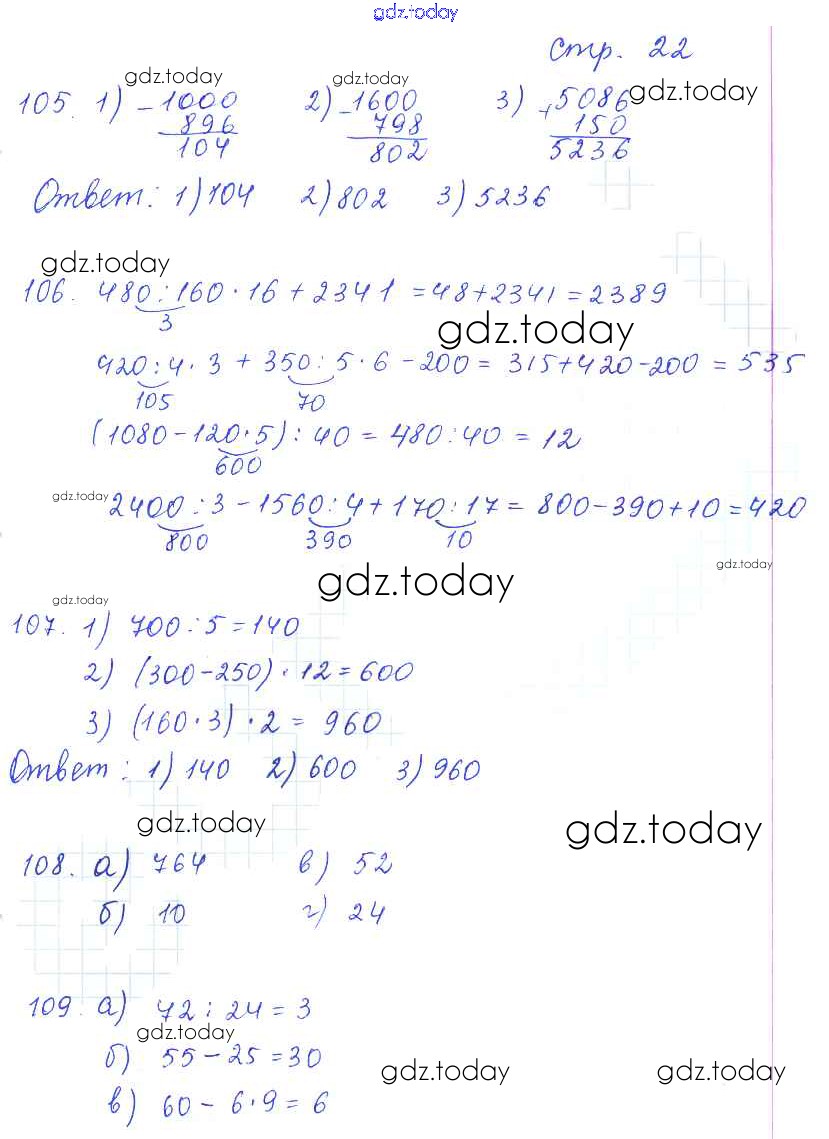 gdz.today
стр. 22
gdz.today gdz.today gdz.today
105. 1) - 1000 2) - 1600 3) + 5086
896 798 150
104 802 5236
Ответ: 1) 104 2) 802 3) 5236
gdz.today
106. 480 : 160 · 16 + 2341 = 48 + 2341 = 2389
3
gdz.today
420 : 4 · 3 + 350 : 5 · 6 - 200 = 315 + 420 - 200 = 535
105 70
(1080 - 120 · 5) : 40 = 480 : 40 = 12
600
gdz.today 2400 : 3 - 1560 : 4 + 170 : 17 = 800 - 390 + 10 = 420
800 390 10
gdz.today
gdz.today
gdz.today
107. 1) 700 : 5 = 140
2) (300 - 250) · 12 = 600
3) (160 · 3) · 2 = 960
Ответ: 1) 140 2) 600 3) 960
gdz.today gdz.today
108. а) 764 в) 52
б) 10 г) 24
109. а) 72 : 24 = 3
gdz.today
б) 55 - 25 = 30
gdz.today gdz.today
в) 60 - 6 · 9 = 6